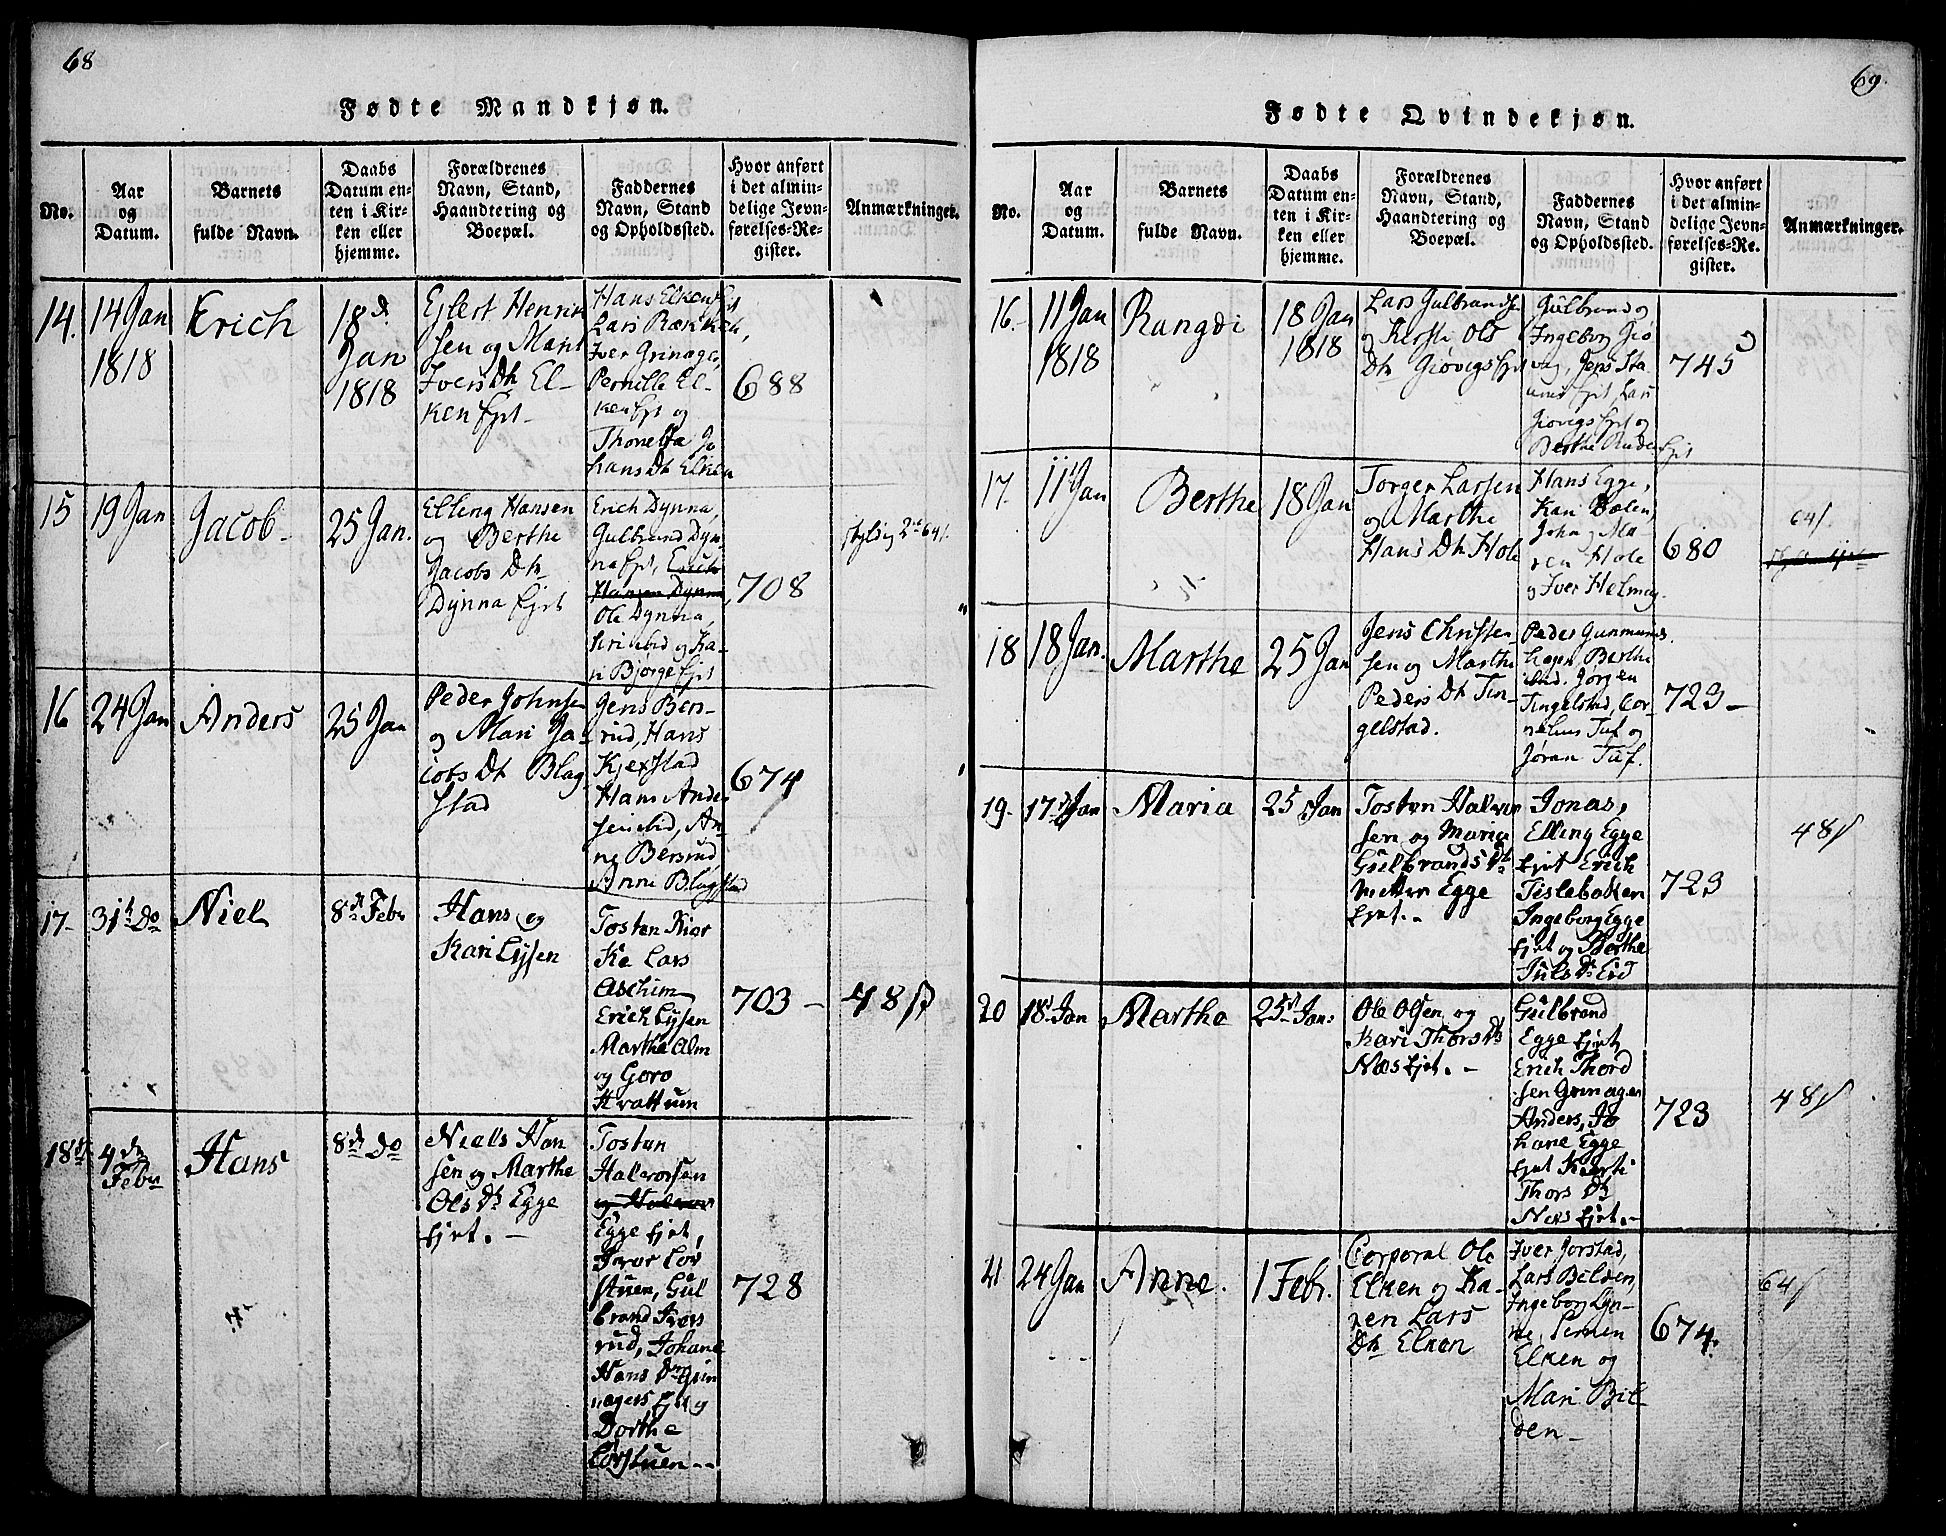 68
Fødte Mandkjøn.
No.
Aar
og
Datum.
Barnets
fulde Navn.
Daabs
Datum en-
ten i Kir-
ken eller
hjemme.
Forældrenes
Navn, Stand,
Haandtering og
Boepæl.
Faddernes
Navn, Stand
og Opholdssted.
Hvor anført
i det almin-
delige Jevn-
førelses-Re-
gister.
Anmærkninger.
14.
14 Jan
1818
Erich
18 d.
Jan
1818
Ejlert Henrik
sen og Mari
Ivers Dtr El-
ken Ejet
Hans Elken Ejet
Lars Rækken,
Iver Grinager,
Pernille El-
ken Ejet og
Thonetta Jo
hans Dtr Elken
688
15
19 Jan
Jacob
25 Jan.
Elling Hansen
og Berthe
Jacobs Dtr
Dynna Ejet
Erich Dynna,
Gulbrand Dyn-
na Ejet, Erich
Hansen Dynna,
Ole Dynna,
og Ka-
ri Bjørge Ejet
708
skyldig 64 s.
16
24 Jan
Anders
25 Jan
Peder Johnsen
og Mari Ja-
cobs Dt Blag
stad
Jens Ber-
rud, Hans
Kjexstad
Hans Ander
sen ibid, An-
ne Bersrud
Anne Blagstad
674
17.
31t Do
Niel
8d Febr
Hans og
Kari Lysen
Tosten Kior
Ke Lars
Aschim
Erich Lysen
Marthe Alm
og Goro
Hvattum
703 –
48 s
18d
4 de
Febr
Hans
8d Do
Niels Han
sen og Marthe
Ols Dt Egge
Ejet. –
Tosten
Halvorsen
og Halvor
Egge Ejet,
Iver Lør
stuen, Gul
brand Ivers
rud, Johane
Hans Dtr Grin
nagers Ejet og
Dorthe
Lørstuen --
728
69.
Fødte Qvindekjøn.
No.
Aar
og
Datum.
Barnets
fulde Navn.
Daabs
Datum en-
ten i Kir-
ken eller
hjemme.
Forældrenes
Navn, Stand,
Haandtering og
Boepæl.
Faddernes
Navn, Stand
og Opholdssted.
Hvor anført
i det almin-
delige Jevn-
førelses-Re-
gister.
Anmærkninger.
16.
11 Jan
1818
Rangdi
18 Jan
1818
Lars Gulbrandsen
og Kersti Ols
Dtr Giøvigs Ejet
Gulbrand og
Ingeborg Giø
vig, Jens Sta
Ejet, Lars
Giøvigs Ejet og
Berthe Ruden Ejet
745
17.
11 Jan
Berthe
18 Jan
Torger Larsen
og Marthe
Hans Dtr Hole
Hans Egge,
Kari Dælen,
John og Ma-
ren Hole
og Iver Helmey.
680
64 s.
18
18 Jan.
Marthe
25 Jan
Jens Christen-
sen og Marthe
Peders Dt Tin-
gelstad.
Peder Gunmunds.
hagen, Berthe
ibid. Jørgen
Tingelstad, Cor-
nelius Tuf og
Jøran Tuf.
723 –
19.
17d Jan
Maria
25 Jan
Tosten Halvor
sen og Maria
Gulbrands Dt
Egge
Ejet. -
Jonas,
Elling Egge
Ejet Erich
Tislebakken
Ingeborg Egge
Ejet og Berthe
Juls Dt Eid
723
48 s
20
18 Jan
Marthe
25d Jan:
Ole Olsen og
Kari Thors Dt
Næs Ejet. –
Gulbrand
Egge Ejet,
Erich Thord
sen Grinager
Anders, Jo
hane Egge
Ejet Kiersti
Thors Dt
Næs Ejet. –
723
48 s
21
24 Jan
Anne.
1 Febr.
Corporal Ole
Elken og Ka-
ren Lars
Dtr Elken
Iver Jorstad,
Lars Bilden,
Ingeborg Lyn-
ne, Pernen
Elken og
Mari Bil-
den –
674.
64 s